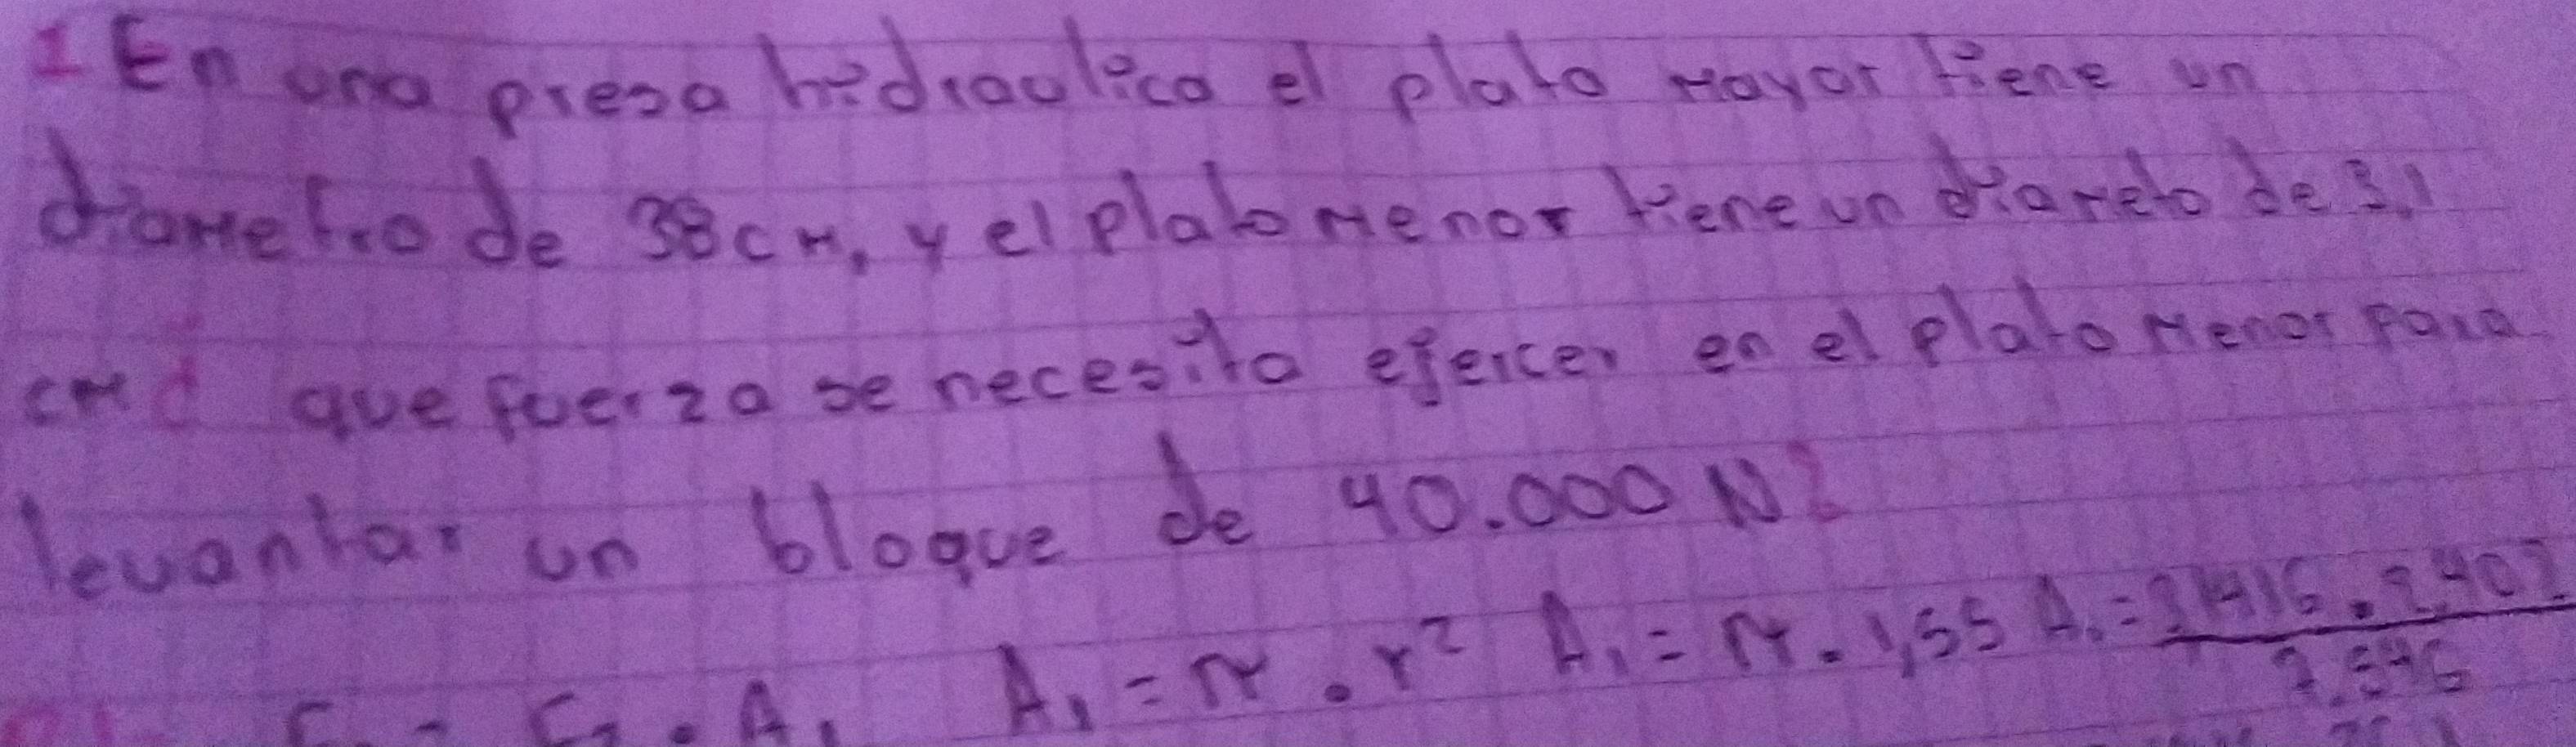 1 En una presa hidraulica el plato mayor tiene un
diametro de 38cm, y el plato menor tiene un diameto de 3,1
cm ¿ que fuerza se necesita ejercer en el plato menor para
levantar un bloque de 40.000 N?
A₁ = π . r² A₁ = π . 1,55 A₁ = 3,1416 . 2,402
7,546
F₂ . A₁